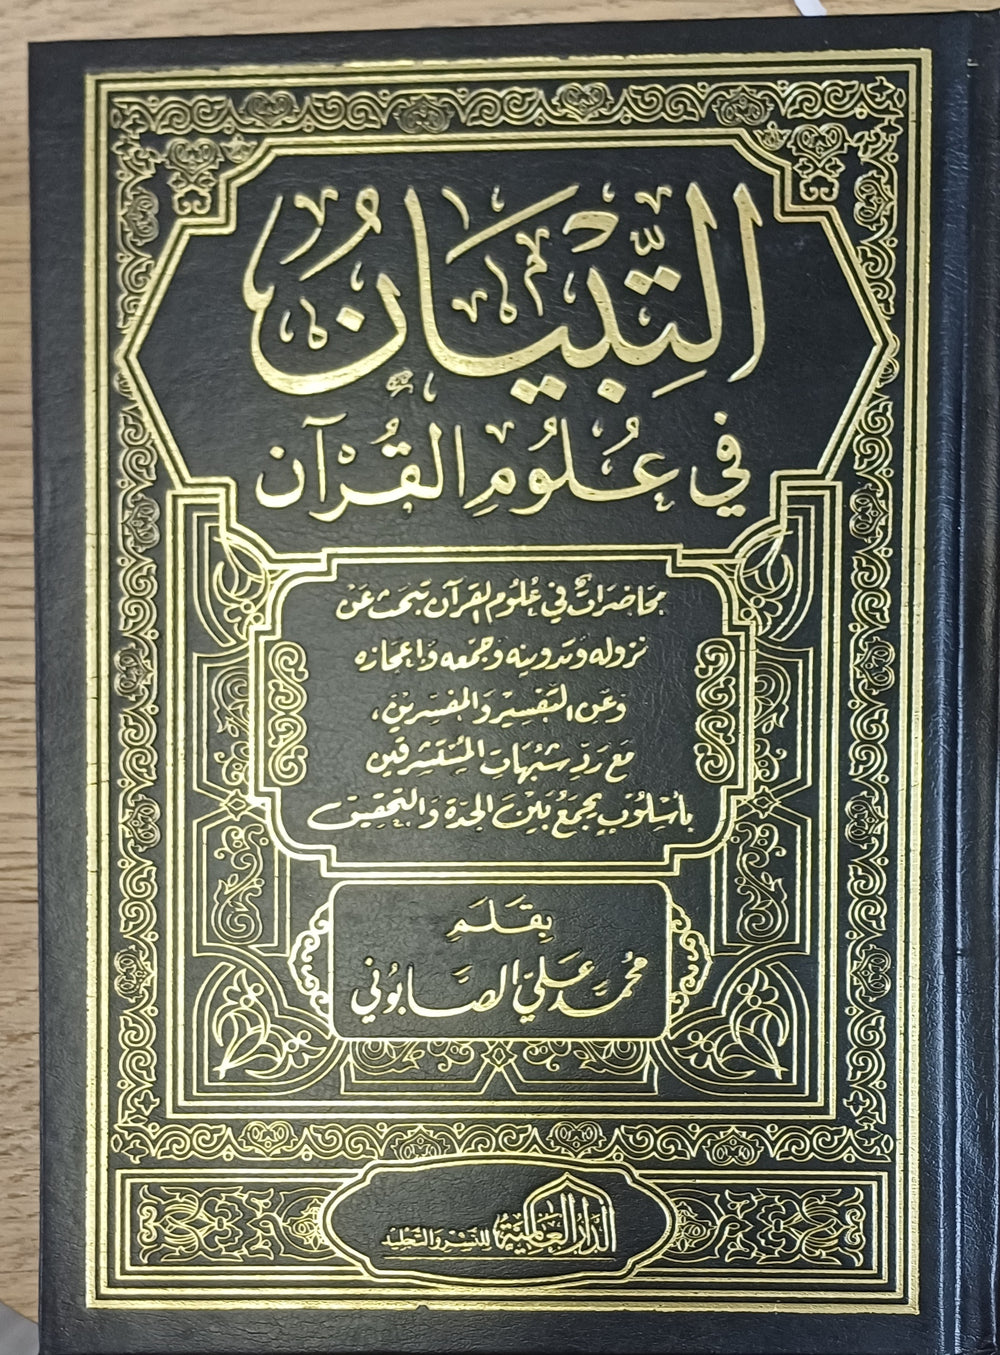 التِّبْيَانُ
في عُلُومِ القُرْآن
محاضراتٌ في عُلُوم القرآن تبحث عَنْ
نزوله وتدوينه وجمعه وإعجازه
وَعَن التفسِيْر وَالمفسِّرين،
مع رَدِّ شبُهَات المُسْتَشرقين
بأسْلُوبٍ يجمَعُ بَيْنَ الجدّة وَالتحقِيق
بِقَلَمِ
محُمّد عَليّ الصَّابُوني
الدَّارُ العَالَمِيَّة للنَّشِر وَالتَّجليْد